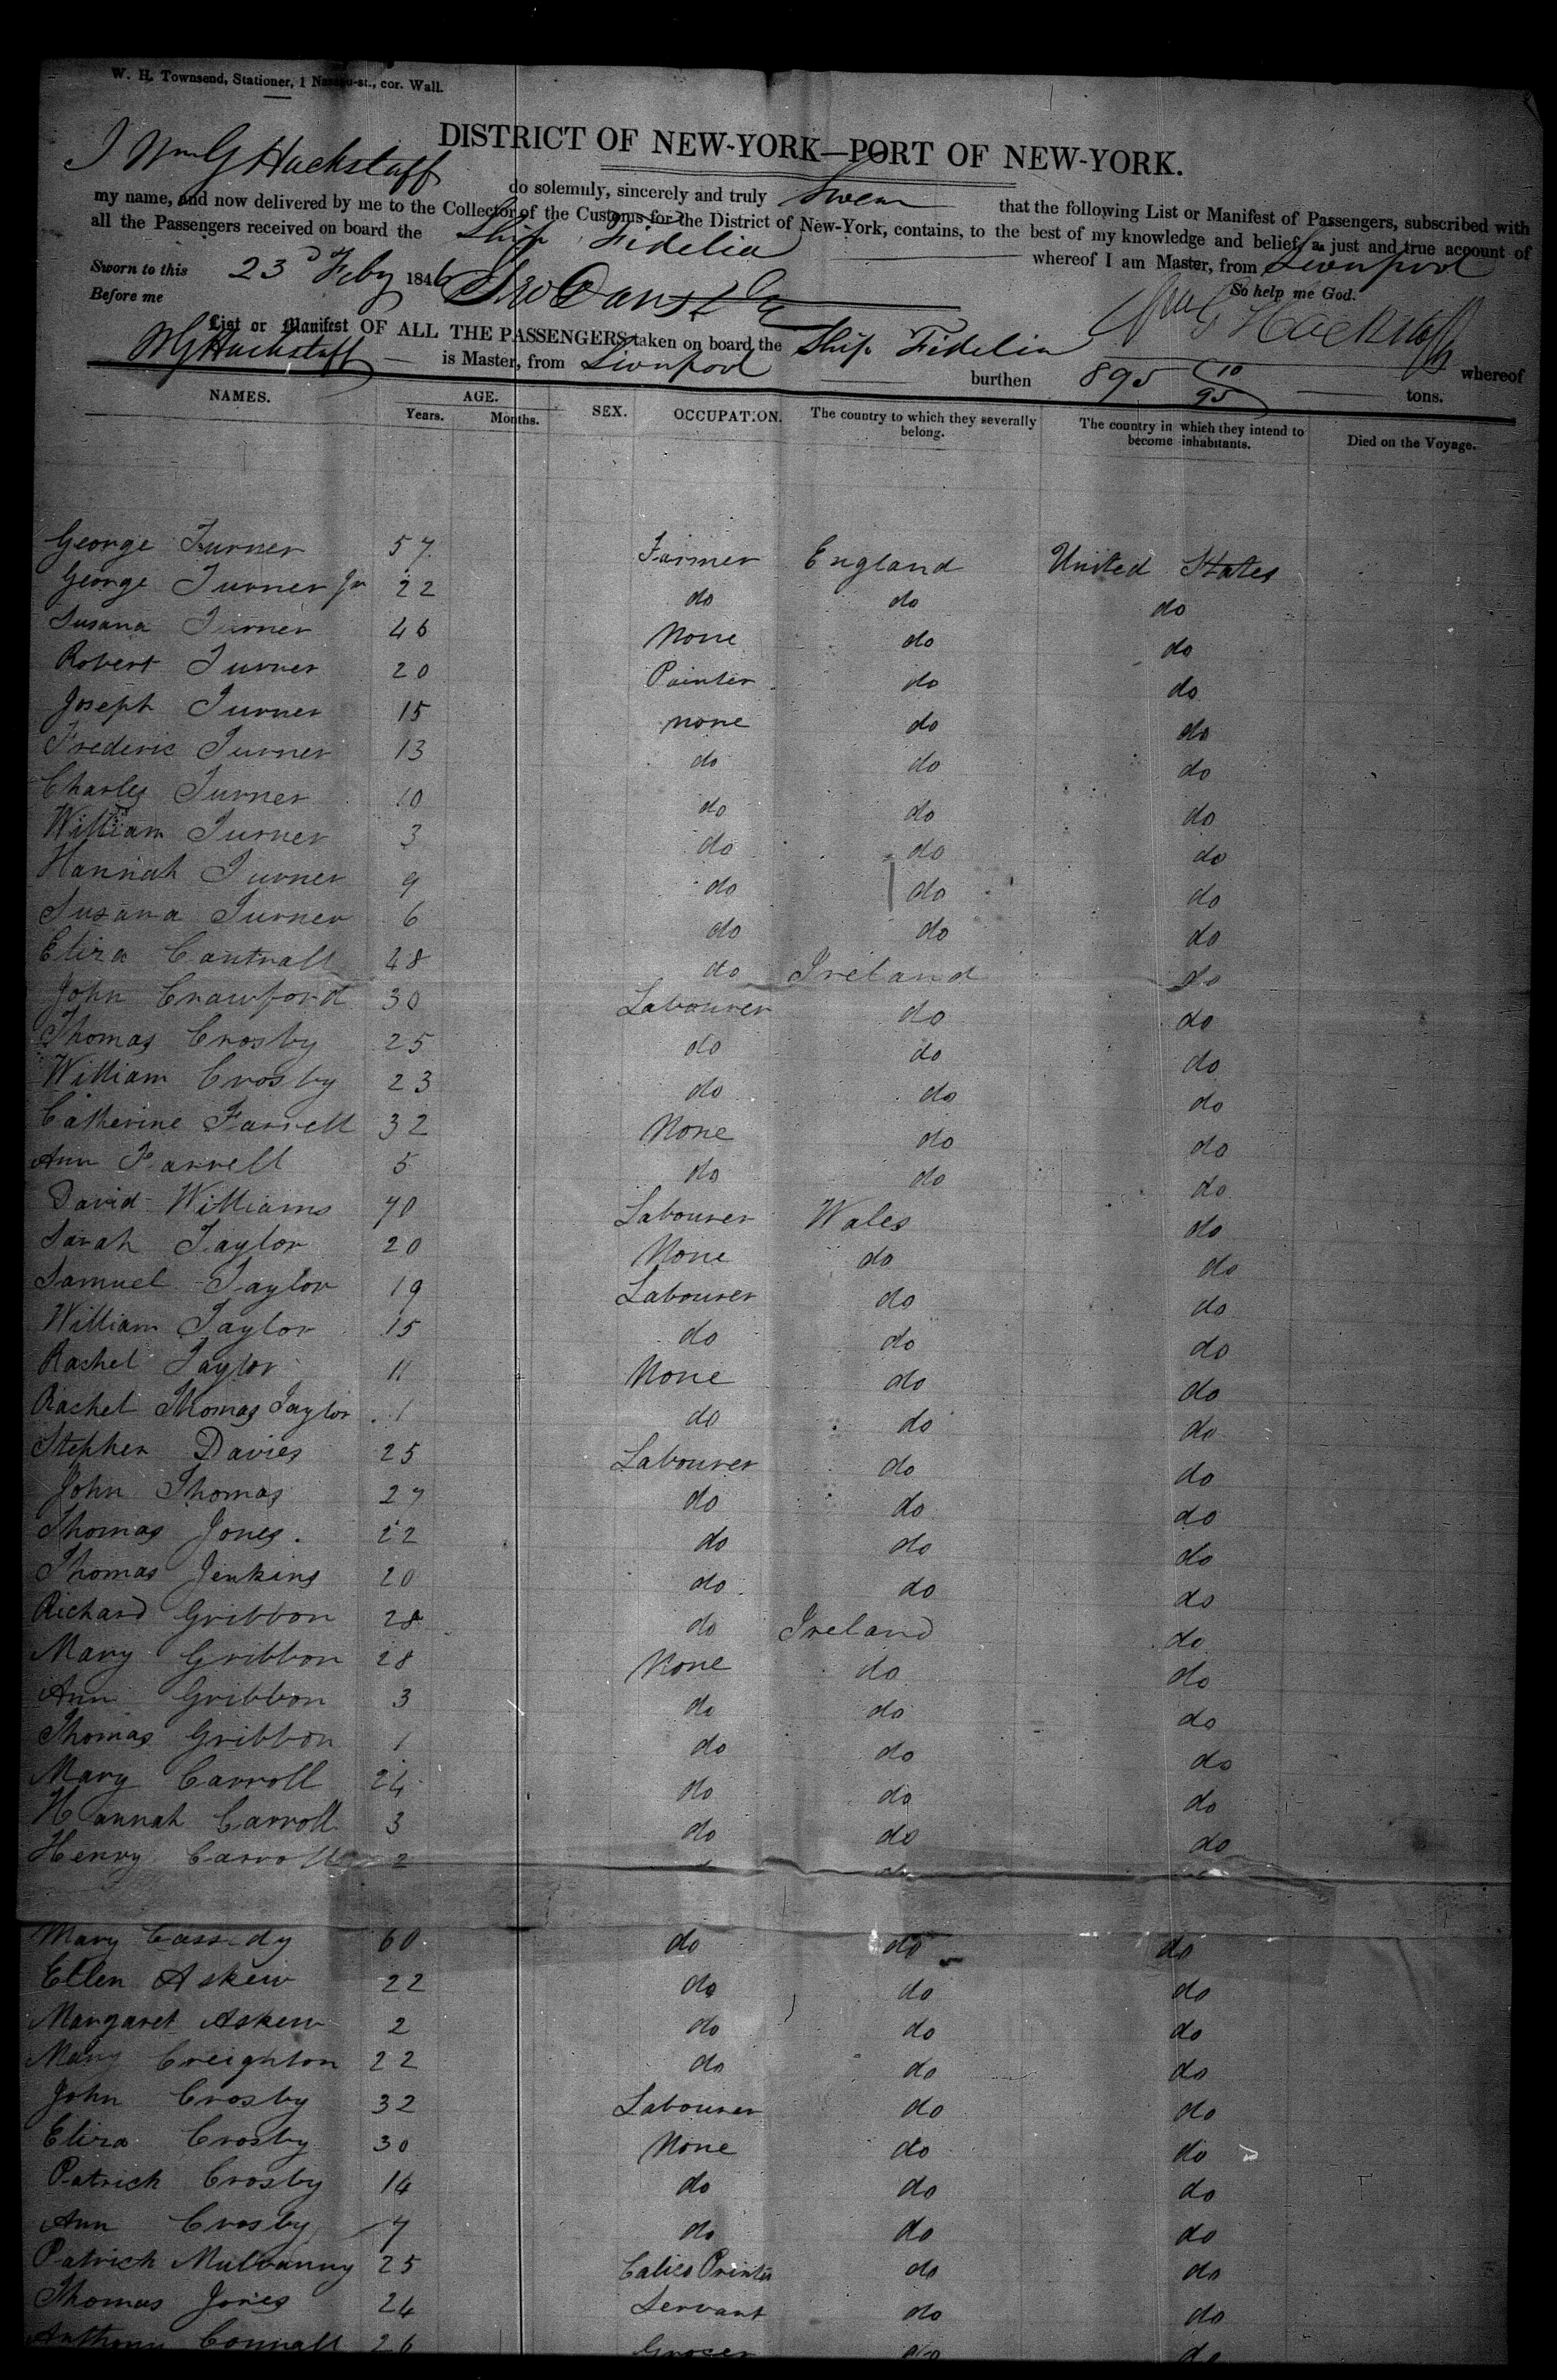 W. H. Townsend, Stationer, 1 Nassau-st., cor. Wall.
DISTRICT OF NEW-YORK—PORT OF NEW-YORK.
I Wm G Hackstaff do solemnly, sincerely and truly Swear that the following List or Manifest of Passengers, subscribed with
my name, and now delivered by me to the Collector of the Customs for the District of New-York, contains, to the best of my knowledge and belief, a just and true account of
all the Passengers received on board the Ship Fidelia whereof I am Master, from Liverpool
Sworn to this 23d Feby 1846 So help me God.
Before me Wm G Hackstaff
List or Manifest OF ALL THE PASSENGERS taken on board the Ship Fidelia whereof
WG Hackstaff is Master, from Liverpool burthen 895 10/95 tons.
NAMES. AGE. SEX. OCCUPATION. The country to which they severally belong. The country in which they intend to become inhabitants. Died on the Voyage.
Years. Months.
George Turner 57 Farmer England United States
George Turner Jr 22 do do do
Susana Turner 46 None do do
Robert Turner 20 Painter do do
Joseph Turner 15 none do do
Frederic Turner 13 do do do
Charles Turner 10 do do do
William Turner 3 do do do
Hannah Turner 9 do do do
Susana Turner 6 do do do
Eliza Cantrall 48 do Ireland do
John Crawford 30 Labourer do do
Thomas Crosby 25 do do do
William Crosby 23 do do do
Catherine Farrell 32 None do do
Ann Farrell 5 do do do
David Williams 70 Labourer Wales do
Sarah Taylor 20 None do do
Samuel Taylor 19 Labourer do do
William Taylor 15 do do do
Rachel Taylor 11 None do do
Rachel Thomas Taylor 1 do do do
Stephen Davies 25 Labourer do do
John Thomas 27 do do do
Thomas Jones. 22 do do do
Thomas Jenkins 20 do do do
Richard Gribbon 28 do Ireland do
Mary Gribbon 28 None do do
Ann Gribbon 3 do do do
Thomas Gribbon 1 do do do
Mary Carroll 24 do do do
Hannah Carroll 3 do do do
Henry Carroll 2
Mary Cassidy 60 do do do
Ellen Askew 22 do do do
Margaret Askew 2 do do do
Mary Creighton 22 do do do
John Crosby 32 Labourer do do
Eliza Crosby 30 None do do
Patrick Crosby 14 do do do
Ann Crosby 7 do do do
Patrick Mulvanny 25 Calico Printer do do
Thomas Jones 24 Servant do do
Anthony Connall 26 Grocer do do